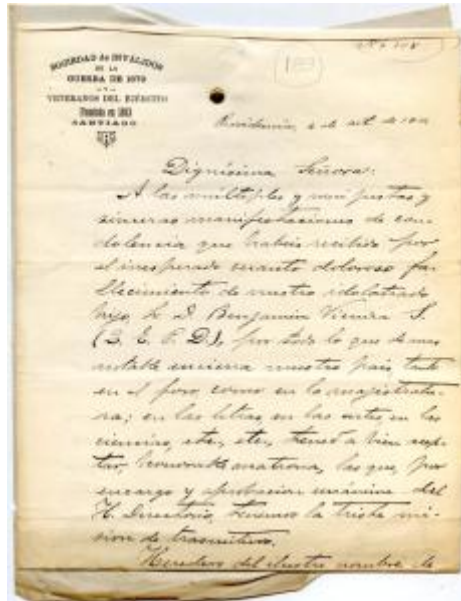 SOCIEDAD de INVALIDOS
DE LA
GUERRA DE 1879
Y
VETERANOS DEL EJÉRCITO
Fundada en 1883
SANTIAGO
Providencia, de oct. de
Dignísima Señora:
A las múltiples y mui justas y
sinceras manifestaciones de con-
dolencia que habeis recibido por
el inesperado cuanto doloroso fa-
llecimiento de vuestro idolatrado
hijo Benjamin Vicuña S.
(Q. E. P. D.), por todo lo que de mas
notable encierra nuestro pais, tanto
en el foro, como en la majistratu-
ra; en las letras, en las artes, en las
ciencias, etc., etc., tened a bien acep-
tar, honorable matrona, las que, por
encargo y aprobacion unánime del
H. Directorio, tenemos la triste mi-
sion de trasmitiros.
Heredero del ilustre nombre de